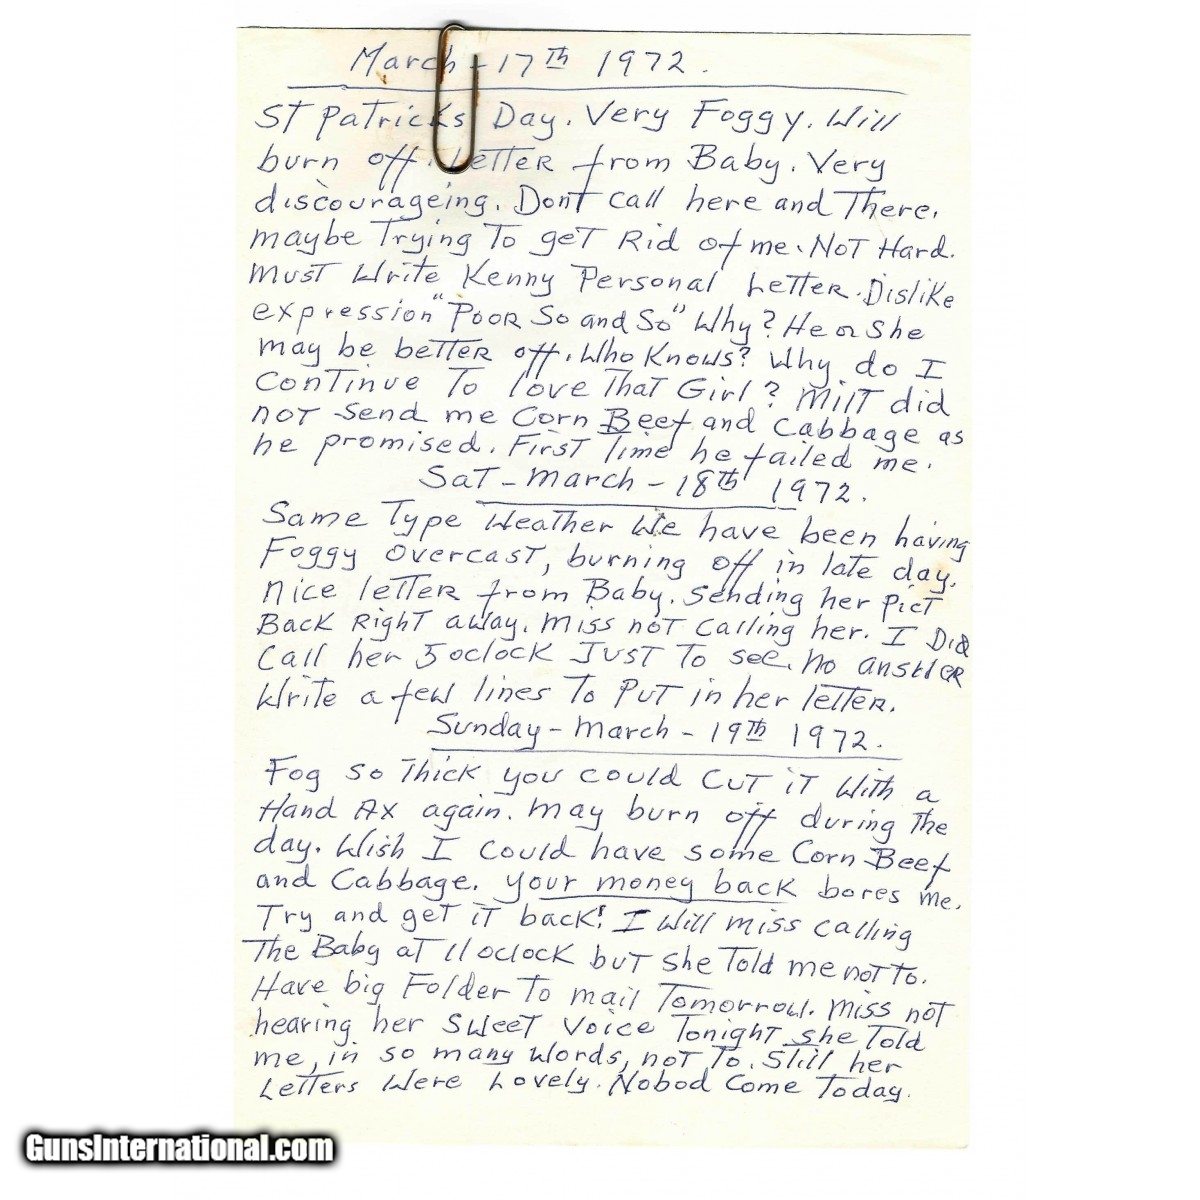 March - 17th 1972.
St Patricks Day. Very Foggy. Will
burn off. Letter from Baby. Very
discourageing. Dont call here and There.
maybe Trying To get Rid of me. Not Hard.
Must Write Kenny Personal Letter. Dislike
expression "Poor So and So" Why? He or She
may be better off. Who Knows? Why do I
continue To love That Girl? Milt did
not send me Corn Beef and Cabbage as
he promised. First Time he failed me.
Sat - March - 18th 1972.
Same Type Weather We have been having
Foggy overcast, burning off in late day.
Nice letter from Baby. Sending her Pict
Back Right away. Miss not calling her. I Did
Call her 5 oclock Just To see. No answer
Write a few lines To Put in her letter.
Sunday - March - 19th 1972.
Fog so Thick you could Cut it With a
Hand Ax again. May burn off during The
day. Wish I could have some Corn Beef
and Cabbage. Your money back bores me.
Try and get it back! I Will miss calling
The Baby at 11 oclock but She Told me not To.
Have big Folder To mail Tomorrow. Miss not
hearing her Sweet Voice Tonight she Told
me, in so many Words, not To. Still her
Letters Were Lovely. Nobod Come Today.
GunsInternational.com